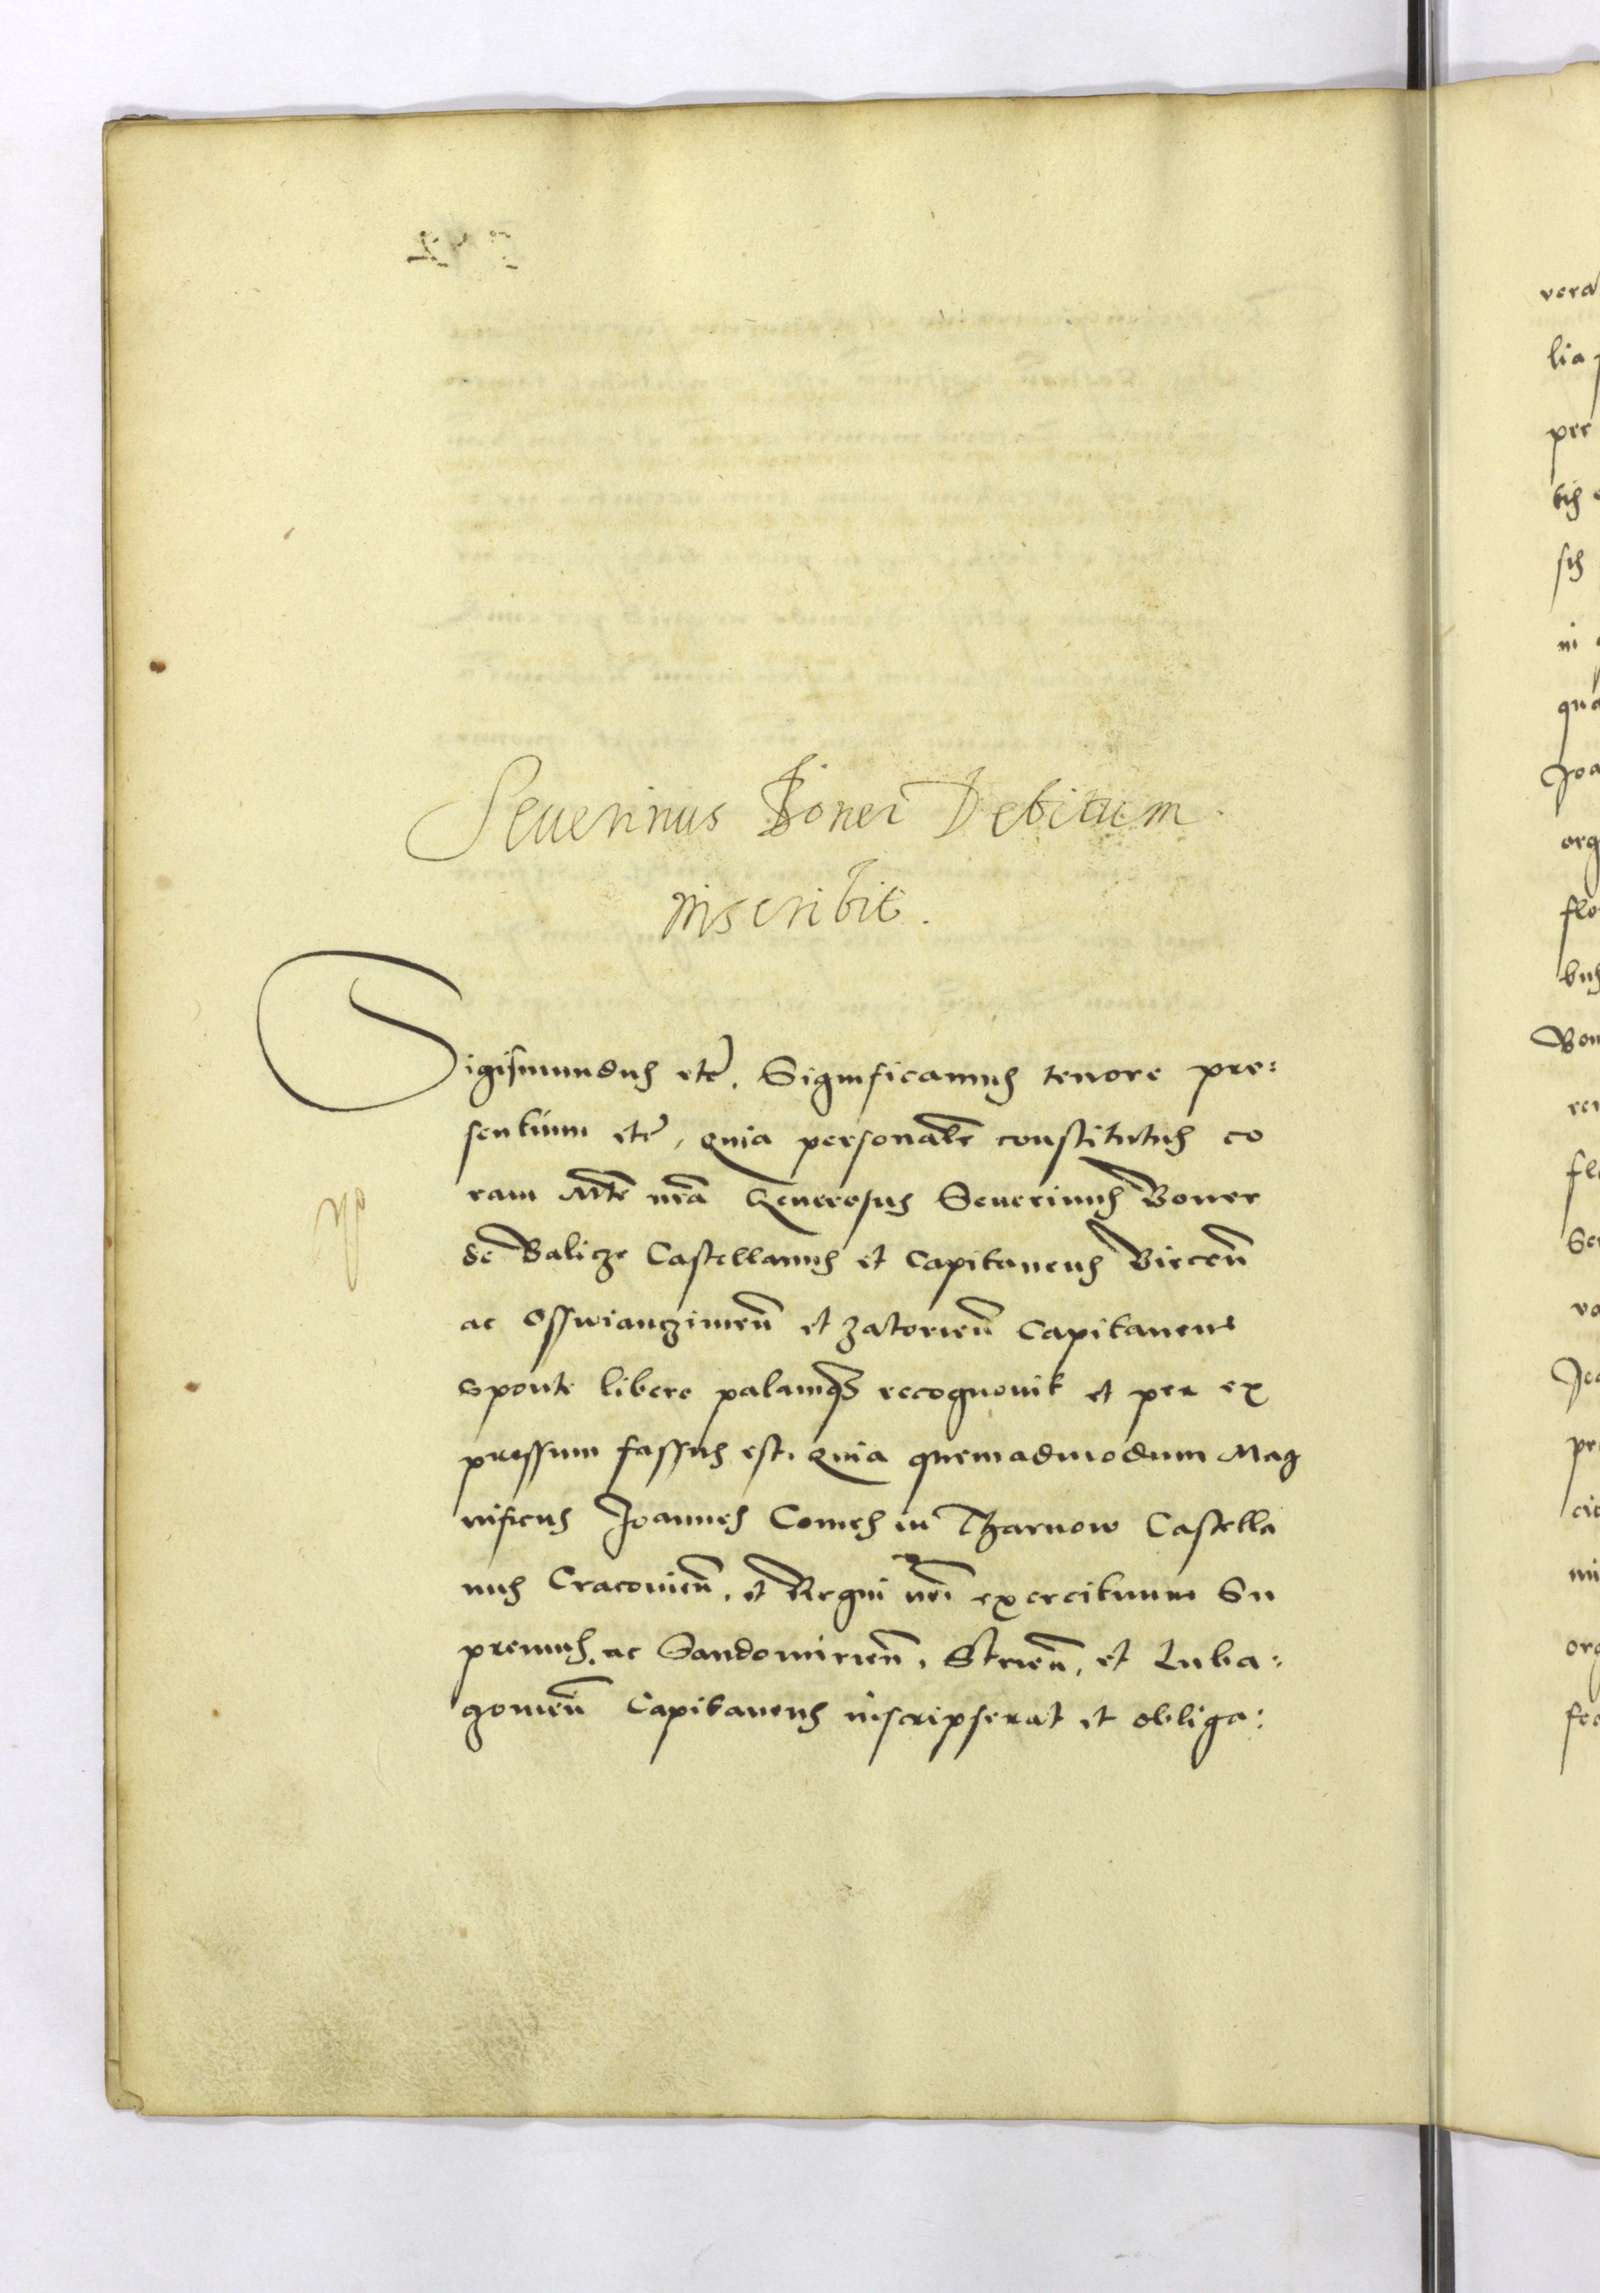 Seuerinus Boner Debitum
inscribit.
Sigismundus etc. Significamus tenore pre:
sentium etc, quia personalr constitutus co
ram Mte nrã Generosus Seuerinus Boner
de Balicze Castellanus et Capitaneus Biecen̄
ac Osswianczimen̄ et Zatorien̄ Capitaneus
sponte libere palamq3 recognouit et per ex
pressum fassus est. Quia quemadmodum Mag
nificus Joannes Comes in Tharnow Castella
nus Cracovien̄. et Regni nri exercituum Su
premus. ac Sandomirien̄. Strien̄. et Luba:
gonien̄ Capitaneus inscripserat et obliga:
vera
lia
per
tis
sis
ni
qua
Joa
org
flo
bus
Bon
ren
flo
Se
vo
Joa
pr
cia
mi
org
fec